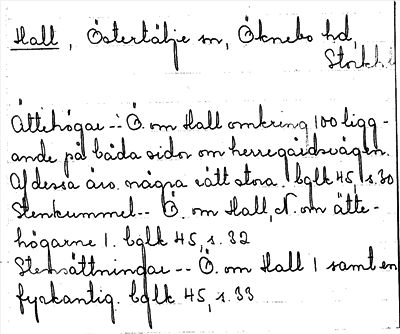 Hall, Östertälje sn, Öknebo hd,
Stockh
Ättehögar -- Ö. om Hall omkring 100 ligg-
ande på båda sidor om herregårdsvägen.
Af dessa äro några rätt stora. bglk 45, s. 30
Stenkummel -- Ö. om Hall, N. om ätte-
högarne 1. bglk 45, s. 32
Stensättningar -- Ö. om Hall 1 samt en
fyrkantig. bglk 45, s. 33